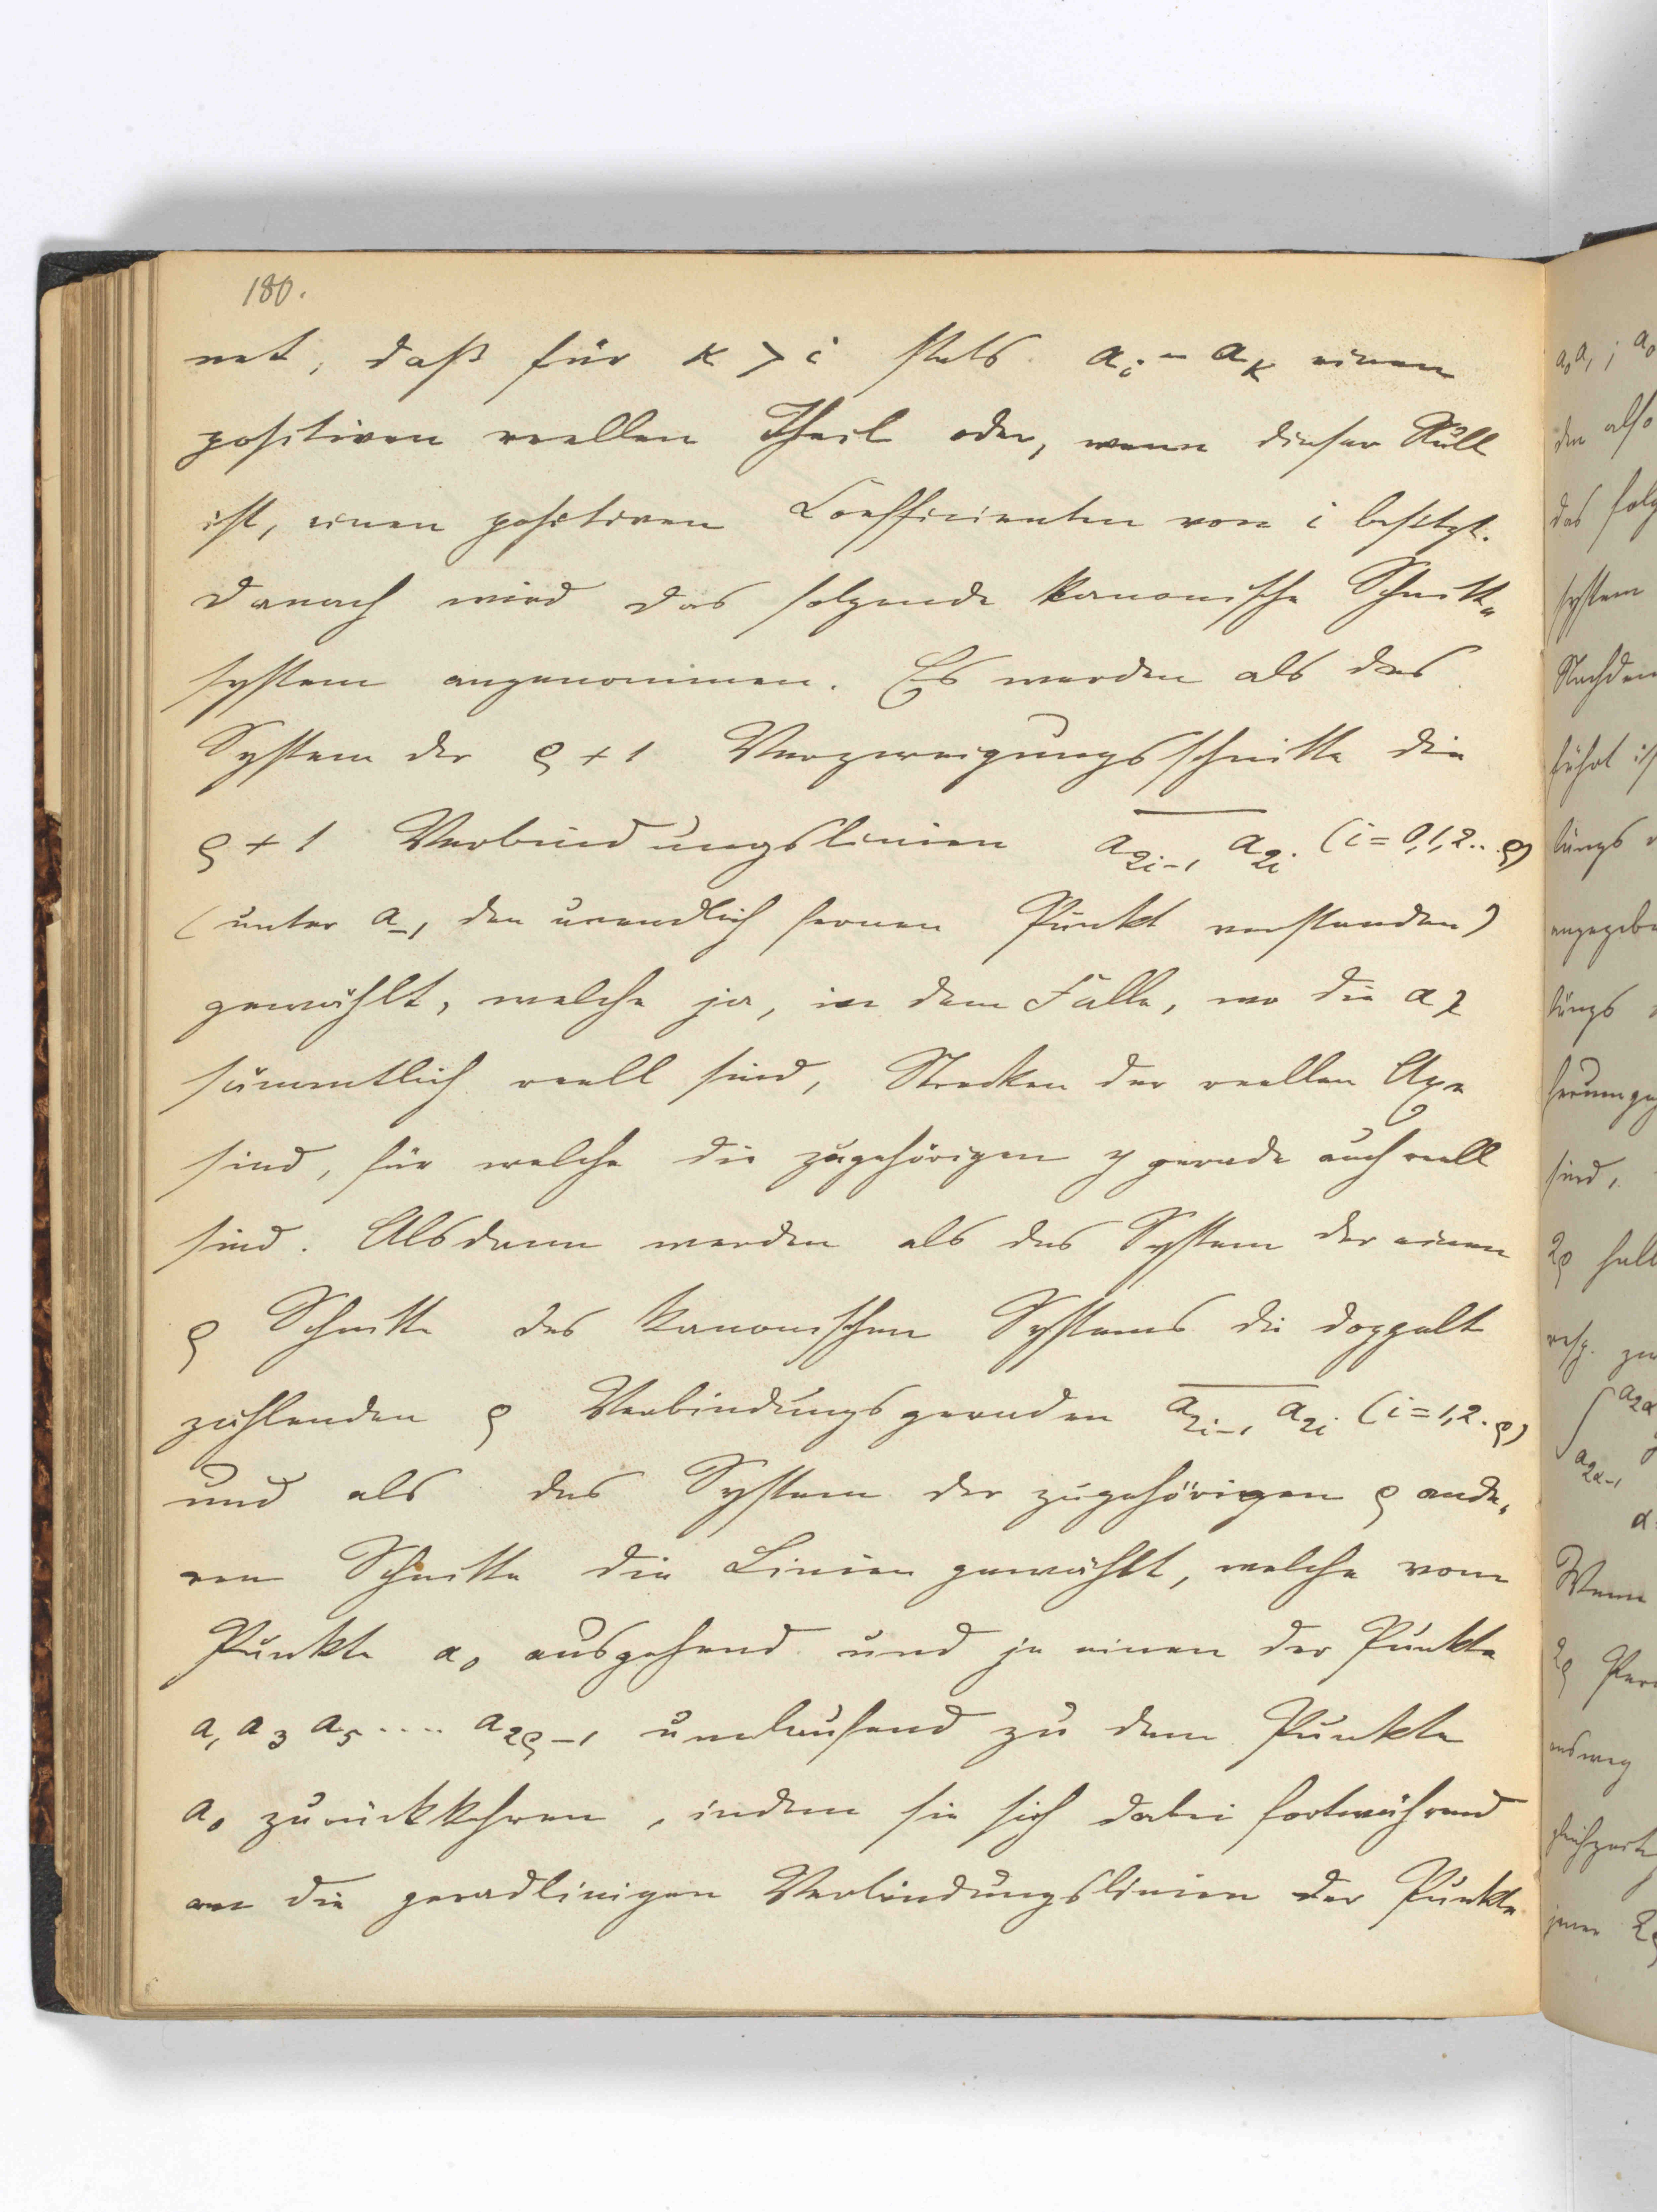 180.
net, daß für κ > i stets a_i - a_κ einen
positiven reellen Theil oder, wenn dieser Null
ist, einen positiven Coefficienten von i besitzt.
Danach wird das folgende kanonische Schnitt„
system angenommen. Es werden als das
System der ϱ + 1 Verzweigungsschnitte die
ϱ + 1 Verbindungslinien \overline{a_{2i-1} a_{2i}} (i = 0,1,2..ϱ)
(unter a_{-1} den unendlich fernen Punkt verstanden)
gewählt, welche ja, in dem Falle, wo die a_λ
sämmtlich reell sind, Strecken der reellen Axe
sind, für welche die zugehörigen y gerade auch reell
sind. Alsdann werden als das System der einen
ϱ Schnitte des kanonischen Systems die doppelt
zählenden ϱ Verbindungsgeraden \overline{a_{2i-1} a_{2i}} (i = 1,2..ϱ)
und als das System der zugehörigen ϱ ande„
ren Schnitte die Linien gewählt, welche vom
Punkte a_0 ausgehend und je einen der Punkte
a_1 a_3 a_5 .... a_{2ϱ-1} umlaufend zu dem Punkte
a_0 zurückkehren, indem sie sich dabei fortwährend
an die geradlinigen Verbindungslinien der Punkte
a_0 a_1 ; a_0
den also
das folg
system
Nachdem
führt is
tungs
angegebe
tungs
herumge
sind,
2ϱ
resp. zu
∫ a_{2α}
a_{2α-1}
α
Wenn
2ϱ Per
jener 2ϱ